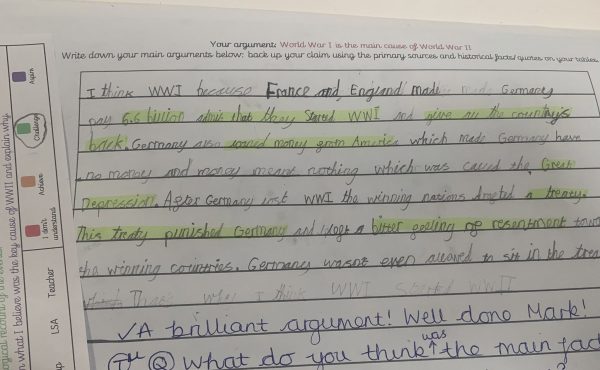 Your argument: World War I is the main cause of World War II
Write down your main arguments below: back up your claim using the primary sources and historical facts/quotes on your tables
I think WWI because France and England made Germany
pay 6.6 billion admit that they stared WWI and give all the country's
back. Germany also money from America which made Germany have
no money and money meant nothing which was caued the Great
Depression. After Germany lost WWI the winning nations drafted a treaty.
This treaty punished Germany and a bitter feeling of resentment
the winning countries. Germany wasnt even allowed to sit in the
Thats why I think WWI started WWII
✓A brilliant argument! Well done Mark!
Q What do you think was the main
Aspire
Challenge
Achieve
I don't understand
Teacher
LSA
n what I believe was the key cause of WWII and explain why.